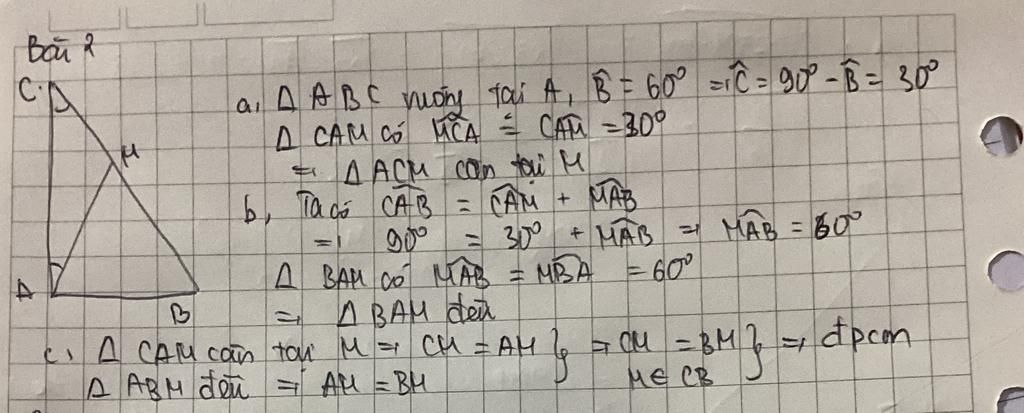 Bài 2
C
M
A
B
a, Δ ABC vuông tại A, B̂ = 60° ⇒ Ĉ = 90° - B̂ = 30°
Δ CAM có MĈA = CÂM = 30°
⇒ Δ ACM cân tại M
b, Ta có CÂB = CÂM + MÂB
⇒ 90° = 30° + MÂB ⇒ MÂB = 60°
Δ BAM có MÂB = MB̂A = 60°
⇒ Δ BAM đều
c, Δ CAM cân tại M ⇒ CM = AM } ⇒ CM = BM } ⇒ đpcm
Δ ABM đều ⇒ AM = BM M ∈ CB